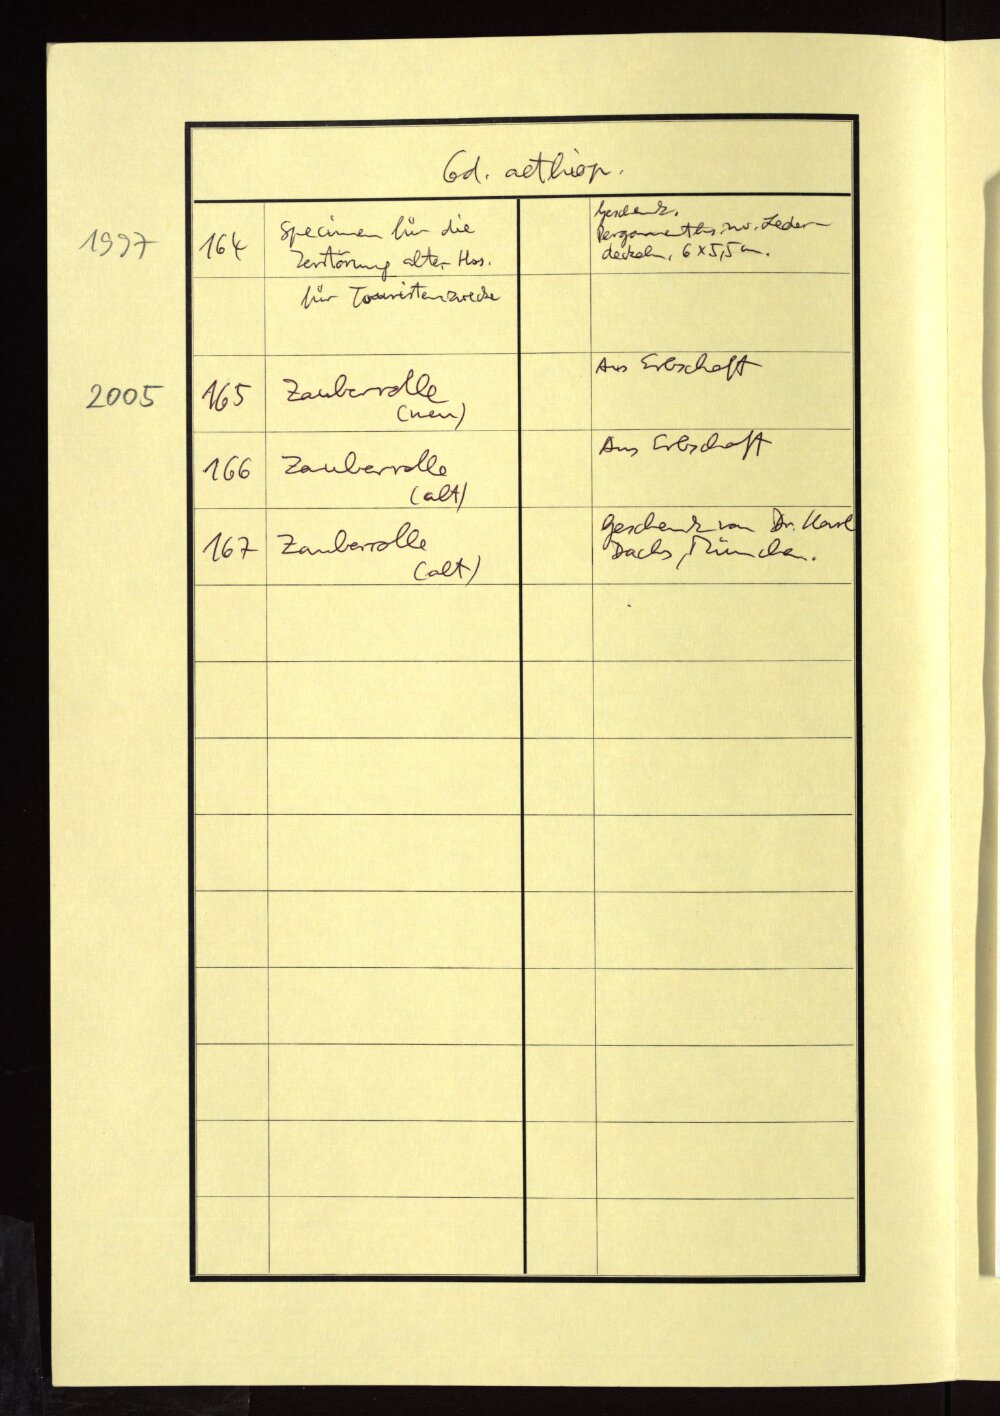 Cod. aethiop.
1997
164
Specimen für die
Zerstörung alter Hss.
für Touristenzwecke
Geschenk.
Pergamenths. zw. Leder-
deckeln, 6 x 5,5 cm.
2005
165
Zauberrolle
(neu)
Aus Erbschaft
166
Zauberrolle
(alt)
Aus Erbschaft
167
Zauberrolle
(alt)
Geschenk von Dr. Karl
Dachs, München.